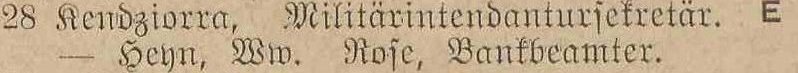 28 Kendziorra, Militärintendantursekretär. E
— Heyn, Ww. Rose, Bankbeamter.